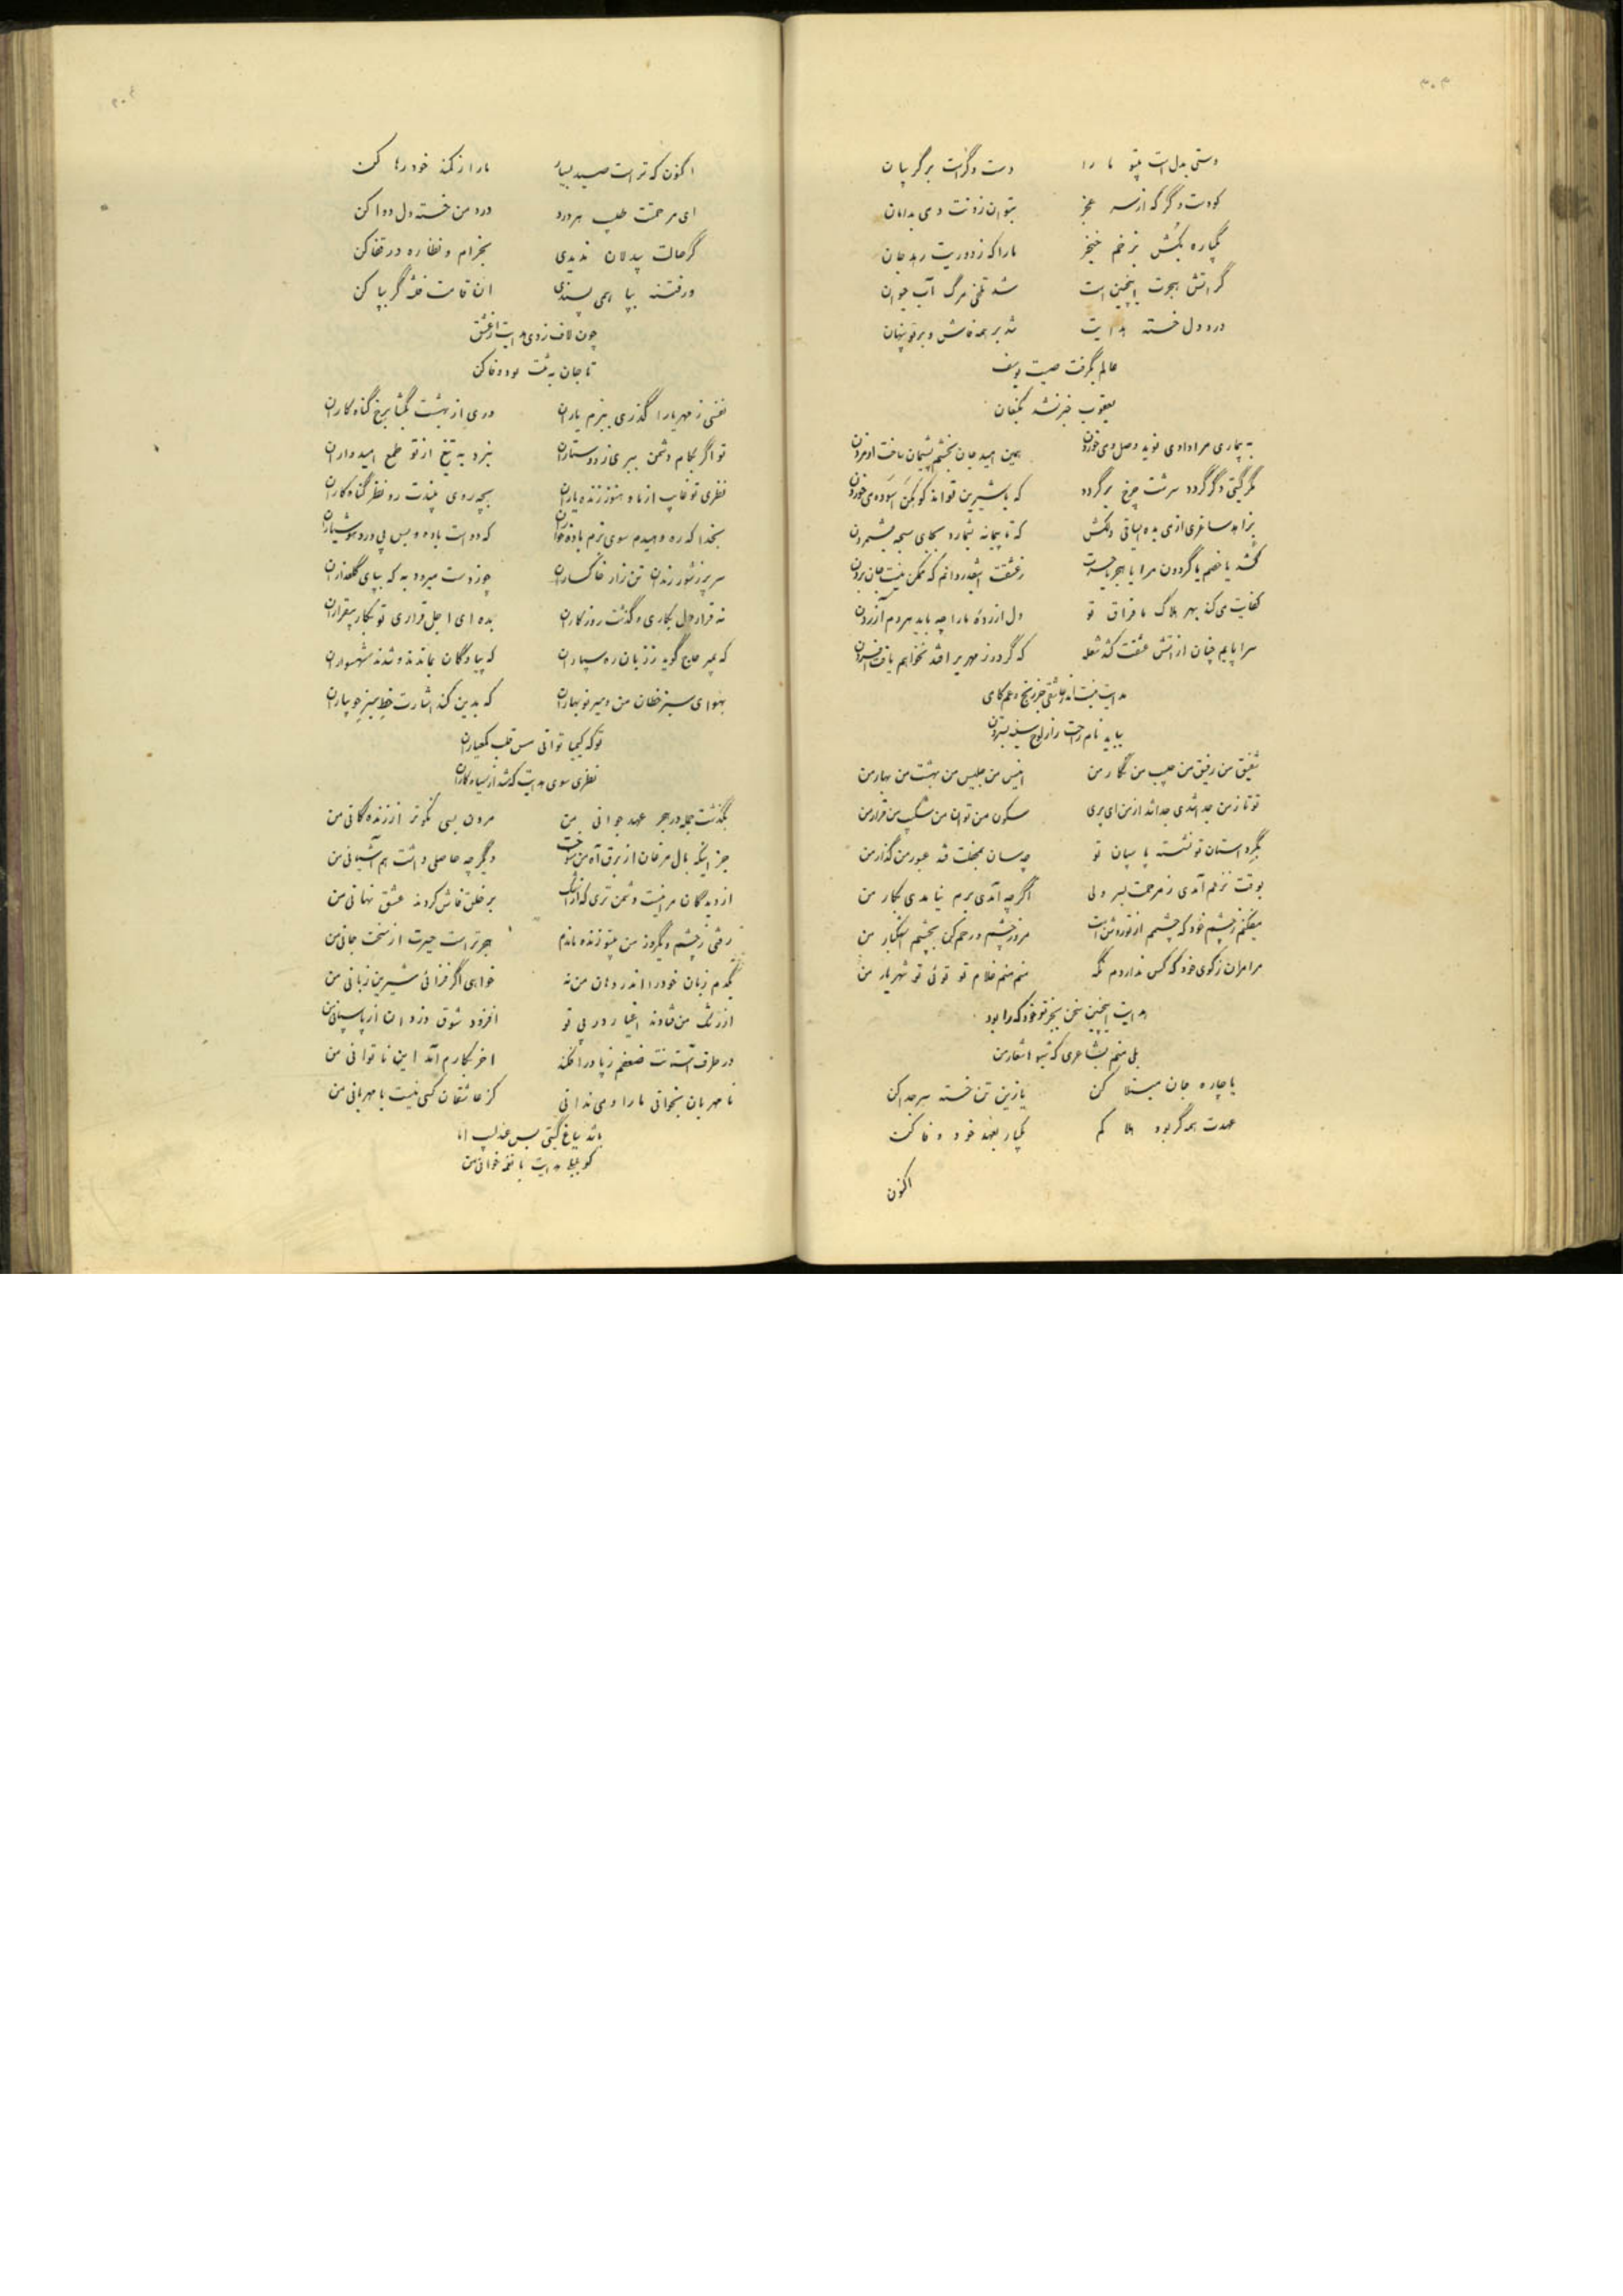 ۳۰۳
دستی بدل است بیتو ما را دست دگر است بر گریبان
کو دست دگر که از سر عجز بتوان زدنت دمی بدامان
یکباره بکش بزخم خنجر ما را که ز دوریت رهد جان
گر آتش هجرت اینچنین است شد تلخی مرگ آب حیوان
درد دل خسته هدایت شد بر همه فاش و بر تو پنهان
عالم بگرفت صیت یوسف
یعقوب خبر نشد بکنعان
به بیماری مرا دادی نوید وصل و می خوردن همین امید جان بخشم پشیمان ساخت از مردن
مگر گیتی دگر گردد سرشت چرخ برگردد که با شیرین تواند کوهکن آسوده می خوردن
بزاهد ساغری از می بده ساقی دلکش که تا پیمانه بشمارد بجای سبحه بشمردن
کشد یا خصم یا گردون مرا یا هجر یا حسرت ز عشقت اینقدر دانم که ممکن نیست جان بردن
کفایت می کند بهر هلاک ما فراق تو دل آزرده ما را چه باید هر دم آزردن
سراپایم چنان از آتش عشقت کشد شعله که گر در زمهریر افتد نخواهم یافت افسردن
هدایت نیست اندر عاشقی جز رنج و غم کامی
بباید نام راحت را ز لوح سینه بستردن
شفیق من رفیق من حبیب من نگار من انیس من جلیس من بهشت من بهار من
تو تا ز من جدا شدی جدا شد از من ای پری سکون من توان من شکیب من قرار من
بگرد آستان تو نشسته پاسبان تو چه سان بمجلست فتد عبور من گذار من
بوقت نزعم آمدی ز مرحمت بسر ولی اگر چه آمدی برم نیامدی بکار من
میفکنم ز چشم خود که چشمم از تو روشن است مرو ز چشم و رحم کن بچشم اشکبار من
مرا مران ز کوی خود که کس نداردم نگه منم منم غلام تو توئی تو شهریار من
هدایت اینچنین سخن بجز تو خود که را بود
بلی منم بشاعری که شیوا اشعار من
یا چاره جان مبتلا کن یا زین تن خسته سر جدا کن
عهدت همه گر بود هلاکم یکبار بعهد خود وفا کن
اکنون
۳۰۴
اکنون که تراست صید بسیار ما را ز کمند خود رها کن
ای مرحمتت طبیب هر درد درد من خسته دل دوا کن
گر حالت بیدلان ندیدی بخرام و نظاره در قفا کن
ور فتنه بپا همی پسندی آن قامت فتنه گر بپا کن
چون لاف زدی هدایت از عشق
تا جان به تنت بود وفا کن
نفسی ز مهر یارا گذری ببزم یاران دری از بهشت بگشا برخ گناه کاران
تو اگر بکام دشمن ببری ز دوستاران نبرد به تیغ از تو طمع امیدواران
نظری تو غایب از ما و هنوز زنده یاران بچه روی بینمت رو نظر گناه کاران
بخدا که ره دهیدم سوی بزم باده خواران که دواست باده و بس پی درد هوشیاران
سر پر ز شور رندان تن زار خاکساران چو ز دست میرود به که بپای گلعذاران
نه قرار دل بکاری و گذشت روزگاران بده ای اجل قراری تو بکار بیقراران
که بمیر حاج گوید ز زبان ره سپاران که پیادگان بماندند و شدند شهسواران
بهوای سبز خطان من و سیر نوبهاران که بدین کند اشارت خط سبز جویباران
تو که کیمیا توانی مس قلب کم عیاران
نظری سوی هدایت که شد از سیاه کاران
بگذشت جمله در هجر عهد جوانی من مردن بسی نکوتر از زندگانی من
جز اینکه بال مرغان از برق آه من سوخت دیگر چه حاصلی داشت هم آشیانی من
از دیدگان مرا نیست دشمن تری که از اشک بر خلق فاش کردند عشق نهانی من
رفتی ز چشم و یکروز من بیتو زنده ماندم هجر تراست حیرت از سخت جانی من
یکدم زبان خود را اندر دهان من نه خواهی اگر فزائی شیرین زبانی من
از رشک من فتادند اغیار در پی تو افزود شوق دزدان از پاسبانی من
در طرف آستانت ضعفم ز پا در افکند آخر بکارم آمد این ناتوانی من
نامهربان بخوانی ما را و می ندانی کز عاشقان کسی نیست با مهربانی من
باشد بباغ گیتی بس عندلیب اما
کو بلبلی هدایت با نغمه خوانی من